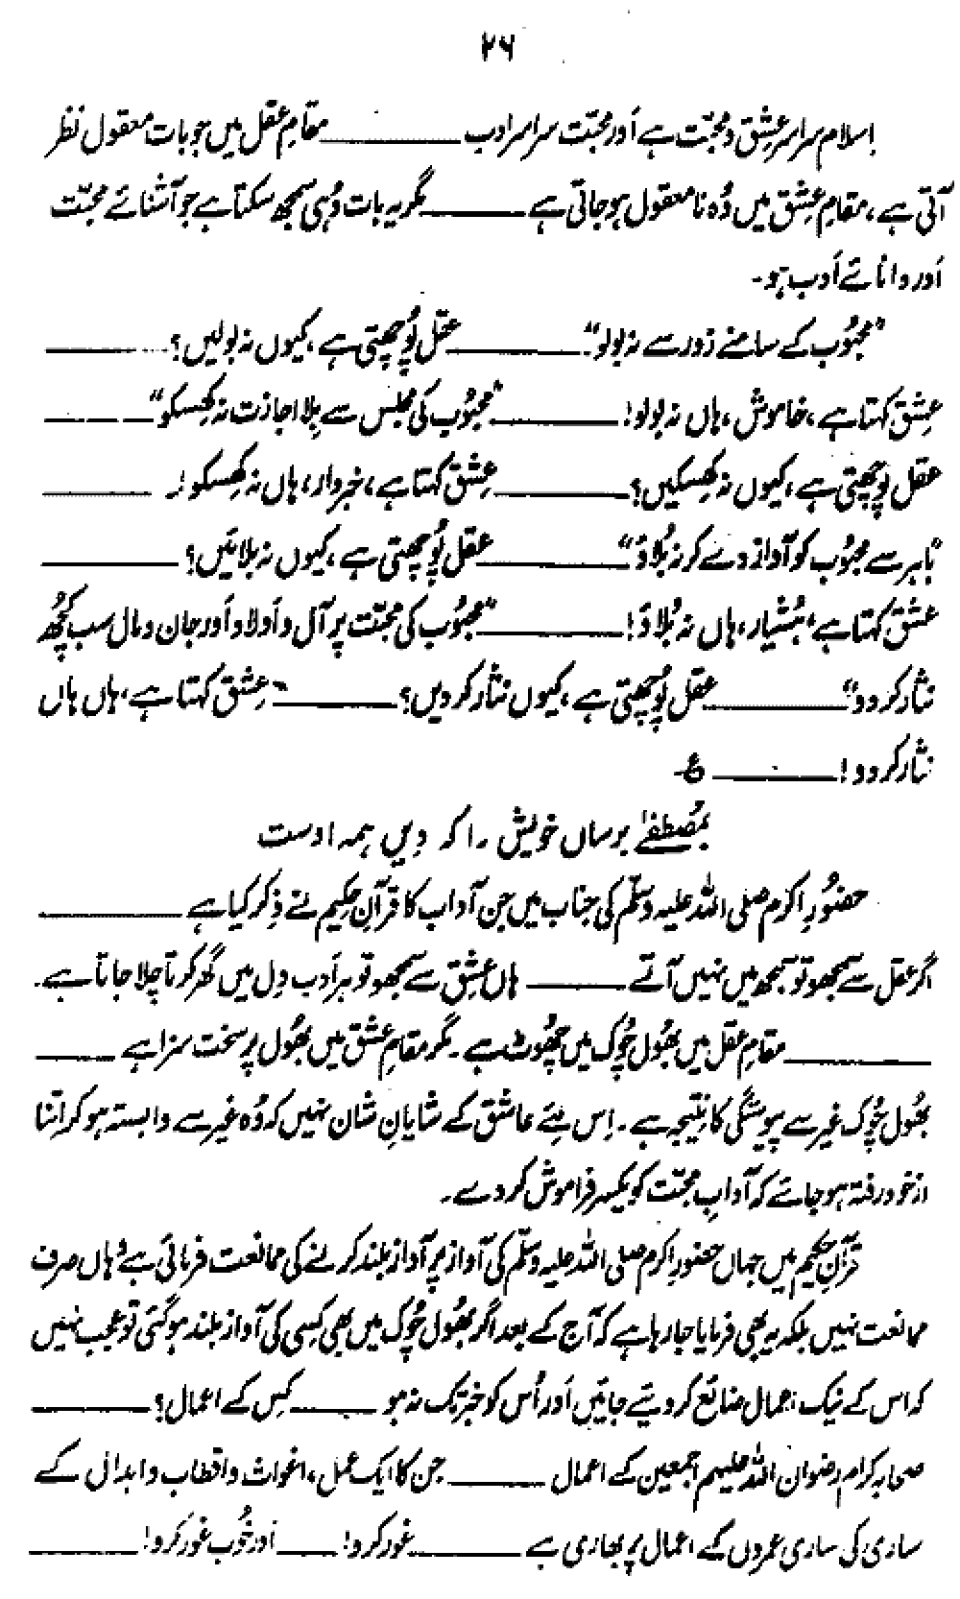 ۲۶
اسلام سراسر عشق و محبّت ہے اَور محبّت سراسر ادب ــــــــــ مقامِ عقل میں جو بات معقول نظر
آتی ہے، مقامِ عشق میں وُہ نا معقول ہو جاتی ہے ــــــــــ مگر یہ بات وُہی سمجھ سکتا ہے جو آشنائے محبّت
اَور دانائے اَدب ہو۔
"محبُوب کے سامنے زور سے نہ بولو" ــــــــــ عقل پُوچھتی ہے، کیوں نہ بولیں؟ ــــــــــ
عِشق کہتا ہے، خاموش، ہاں نہ بولو! ــــــــــ "محبُوب کی مجلس سے بِلا اجازت نہ کھِسکو" ــــــــــ
عقل پُوچھتی ہے، کیوں نہ کھِسکیں؟ ــــــــــ عِشق کہتا ہے، خبردار، ہاں نہ کھِسکو! ــــــــــ
"باہر سے محبُوب کو آواز دے کر نہ بُلاؤ" ــــــــــ عقل پُوچھتی ہے، کیوں نہ بلائیں؟ ــــــــــ
عشق کہتا ہے، ہُشیار، ہاں نہ بُلاؤ! ــــــــــ "محبُوب کی محبّت پر آل و اَولاد اَور جان و مال سب کچُھ
نثار کر دو" ــــــــــ عقل پُوچھتی ہے، کیوں نثار کر دیں؟ ــــــــــ عِشق کہتا ہے، ہاں ہاں
نثار کر دو! ــــــــــ ع
بمُصطفےٰ برساں خویش را کہ دِیں ہمہ اوست
حضُورِ اکرم صلی اللہ علیہ وسلّم کی جناب میں جن آداب کا قرآنِ حکیم نے ذِکر کیا ہے ــــــــــ
اگر عقل سے سمجھو تو سمجھ میں نہیں آتے ــــــــــ ہاں عشِق سے سمجھو تو ہر اَدب دِل میں گھر کرتا چلا جاتا ہے۔
ــــــــــ مقامِ عقل میں بھُول چُوک میں چھُوٹ ہے۔ مگر مقامِ عشق میں بھُول پر سخت سزا ہے ــــــــــ
بھُول چُوک غیر سے پیوستگی کا نتیجہ ہے۔ اِس لئے عاشق کے شایانِ شان نہیں کہ وُہ غیر سے وابستہ ہو کر اِتنا
از خود رفتہ ہو جائے کہ آدابِ محبّت کو یکسر فراموش کر دے۔
قرآنِ حکیم میں جہاں حضورِ اکرم صلی اللہ علیہ وسلّم کی آواز پر آواز بلند کرنے کی ممانعت فرمائی ہے وُہاں صرف
ممانعت نہیں بلکہ یہ بھی فرمایا جا رہا ہے کہ آج کے بعد اگر بھُول چُوک میں بھی کِسی کی آواز بلند ہو گئی تو عجب نہیں
کہ اس کے نیک اعمال ضائع کر دیئے جائیں اَور اُس کو خبر تک نہ ہو ــــــــــ کِس کے اعمال؟ ــــــــــ
صحابہ کرام رضوان اللہ علیہم اجمعین کے اعمال ــــــــــ جن کا ایک عمل، اغواث و اقطاب و ابدال کے
ساری کی ساری عمروں کے اعمال پر بھاری ہے ــــــــــ غور کرو! ــــــــــ اَور خُوب غور کرو! ــــــــــ